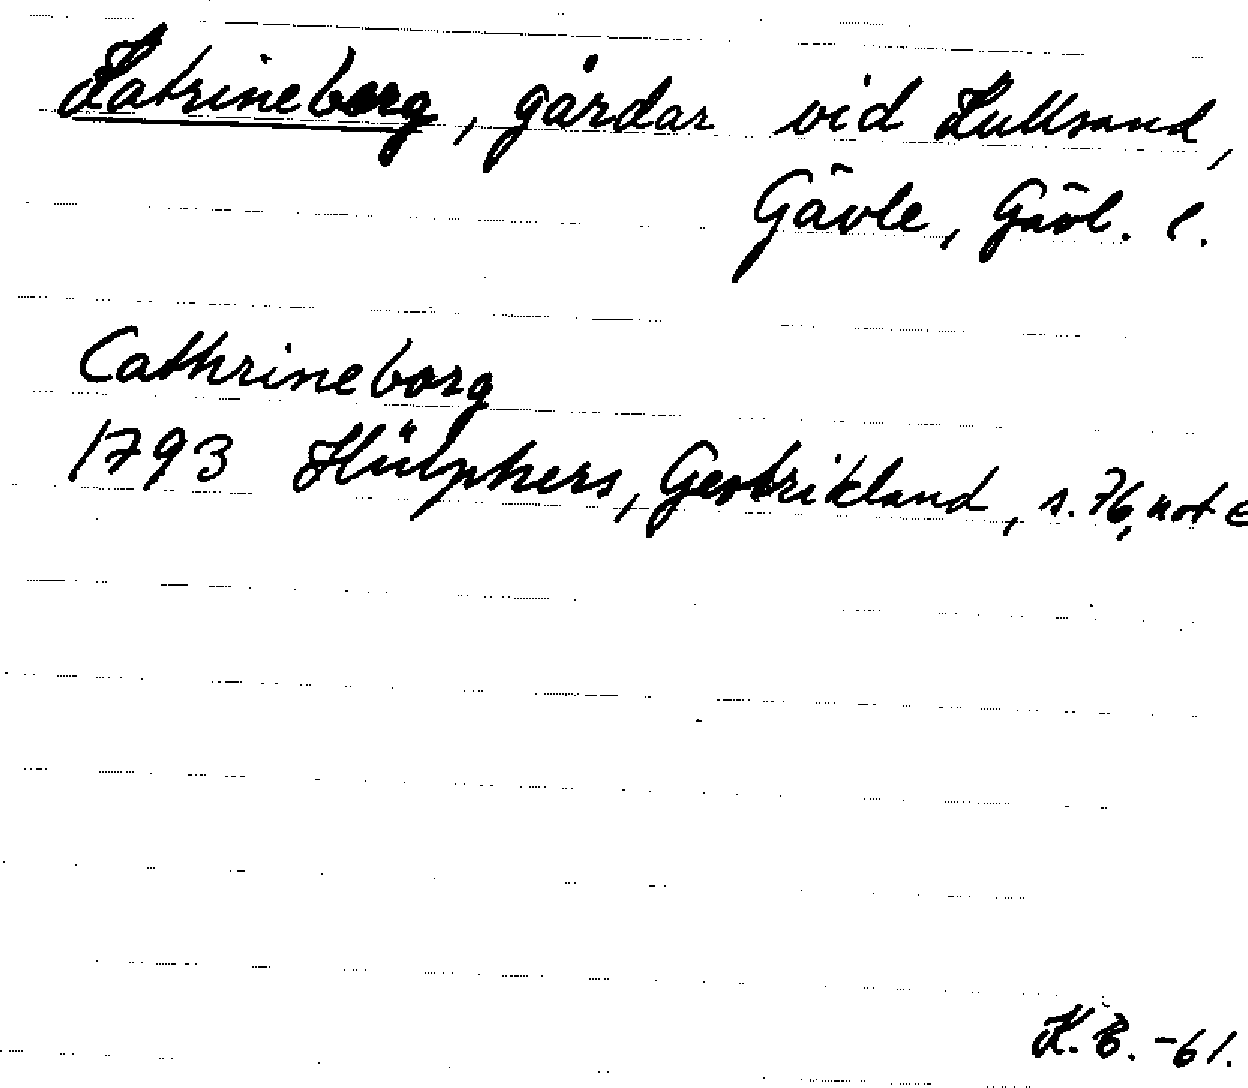 Katrineberg, gårdar vid Kullsand,
Gävle, Gävl. l.
Cathrineborg
1793 Hülphers, Gestrikland, s. 76, note
K.B. -61.